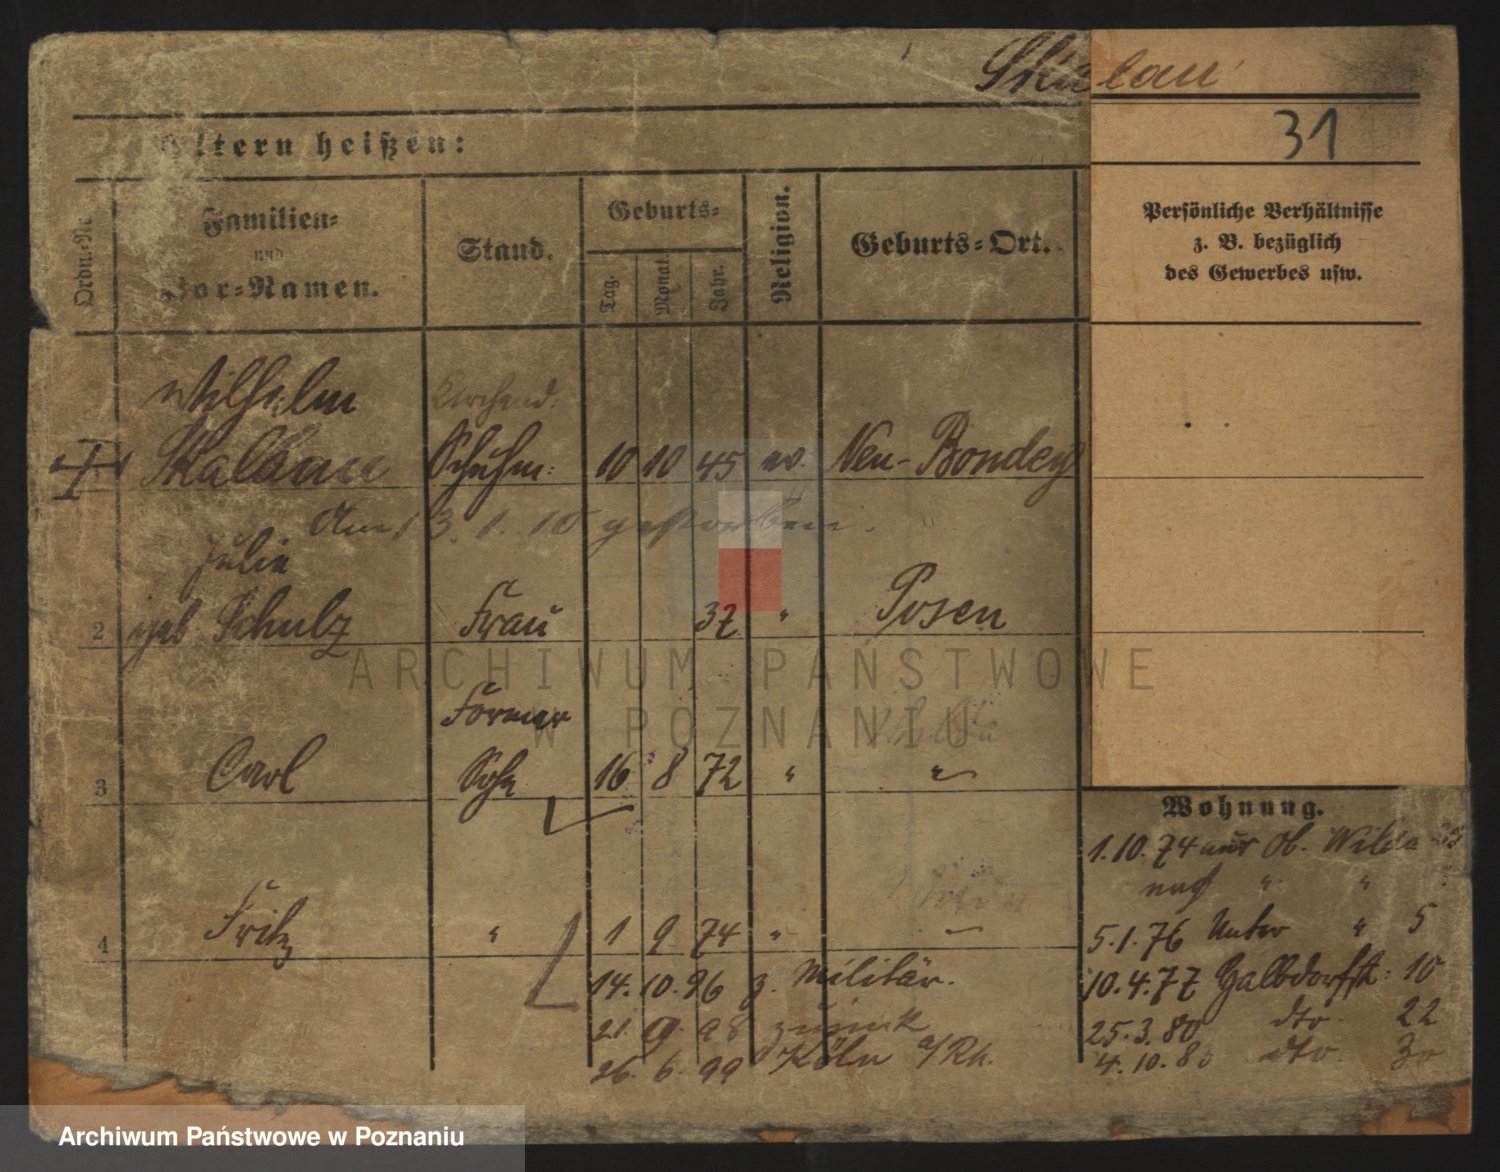 Skalau
31
Eltern heißen:
Ordn.-Nr.
Familien-
und
Vor-Namen.
Stand.
Geburts-
Tag.
Monat.
Jahr.
Religion.
Geburts-Ort.
Persönliche Verhältnisse
z. B. bezüglich
des Gewerbes usw.
Wilhelm
Schuhm: 10 10 45 ev. Neu-
Am 13. 1. 10 gestorben.
Julie
2 geb. Schulz Frau 37 " Posen
Former
3 Carl Sohn 16 8 72 " "
4 Fritz " 1 9 74 " "
14. 10. 96 z. Militär.
21. 9. 98 zurück
26. 6. 99 Köln a/Rh.
Wohnung.
1.10.74 aus Ob. Wilda
nach " "
5.1.76 Unter " 5
10.4.77 Halbdorfstr: 10
25.3.80 dto 22
4.10.80 dto.
ARCHIWUM PAŃSTWOWE
W POZNANIU
Archiwum Państwowe w Poznaniu